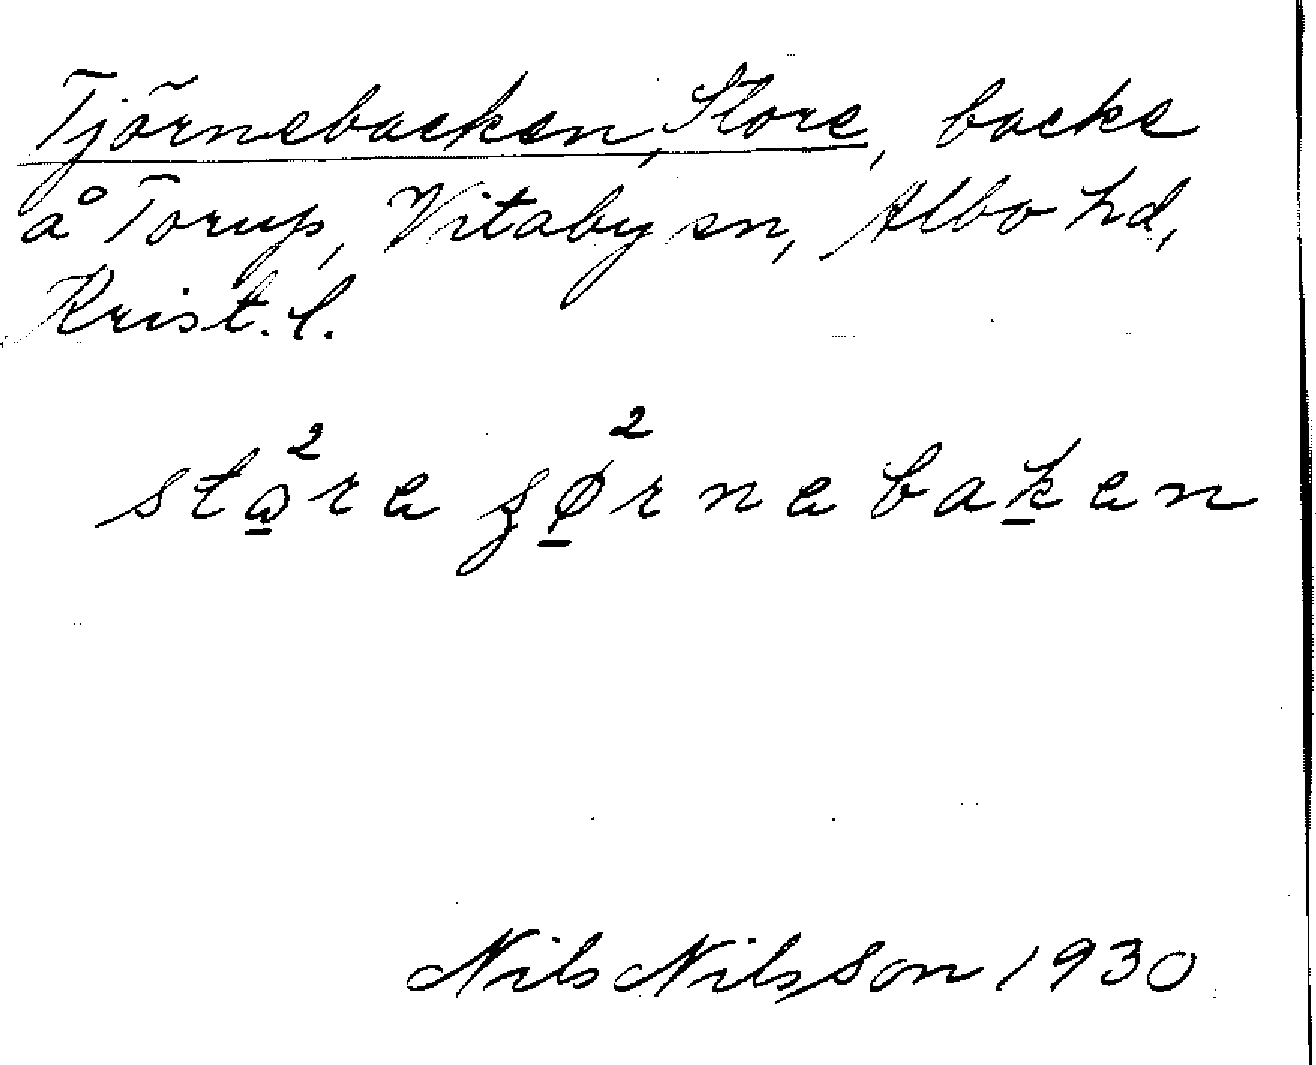 Tjörnebacken, Store, backe
å Torup, Vitaby sn, Albo hd,
Krist. l.
stǫ̲²re ʂø̲²rnebak̲en
Nils Nilsson 1930